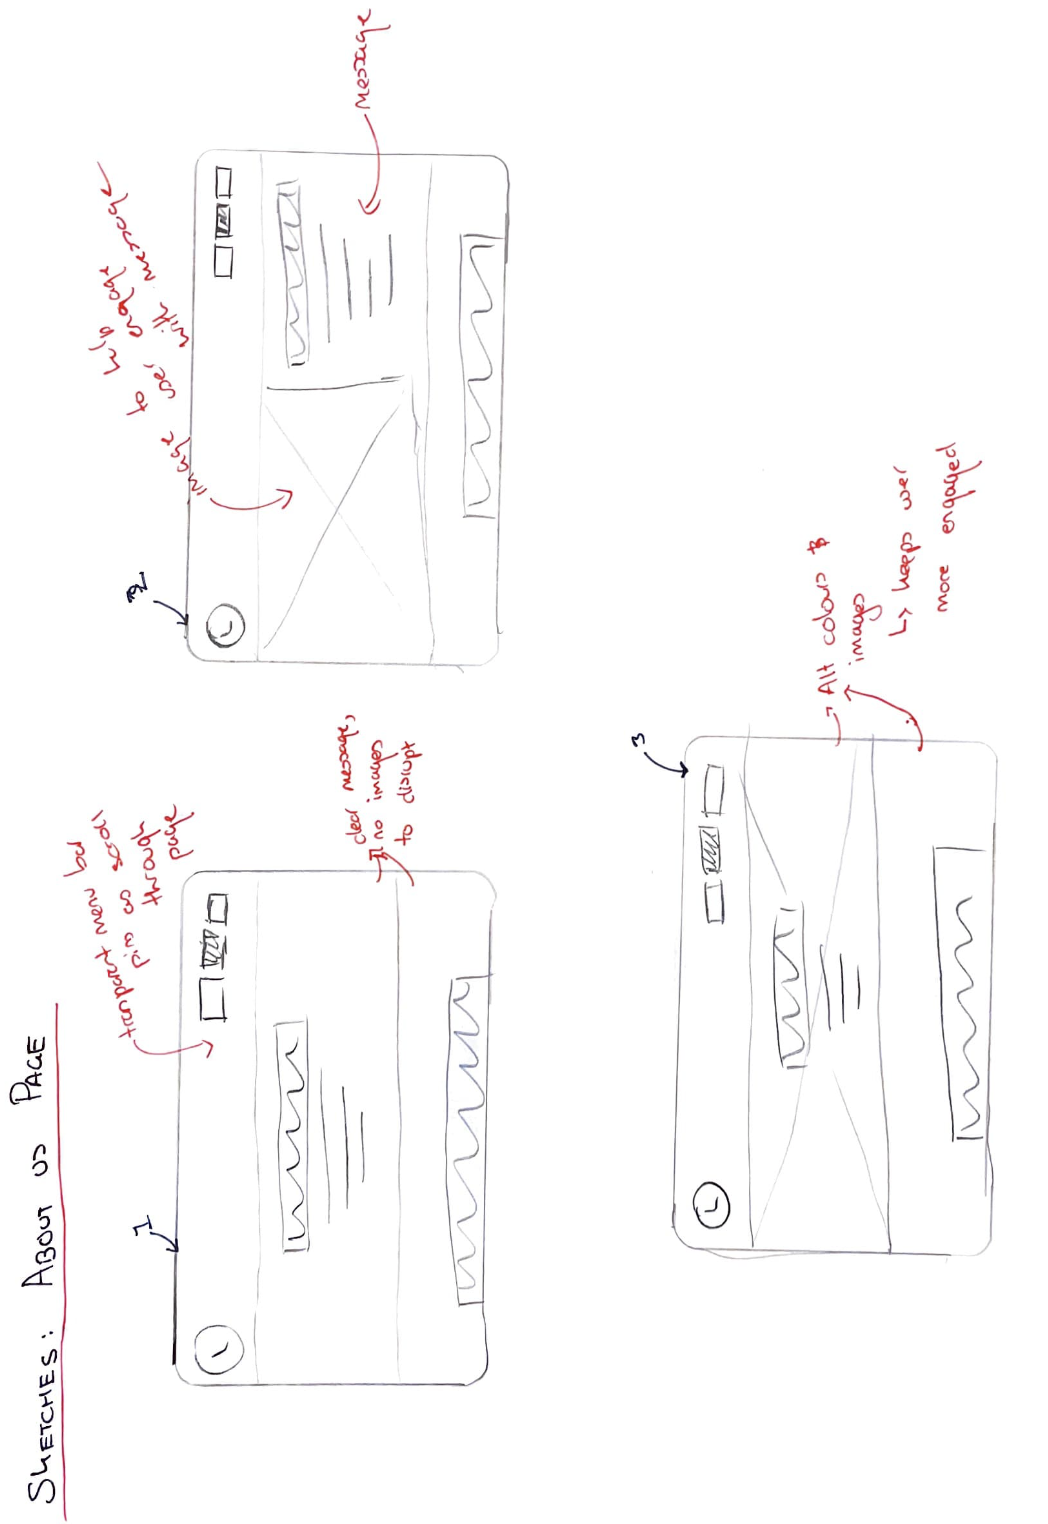 SKETCHES: ABOUT US PAGE
1
tranparent menu bar
pin as scroll
through
page
clear message,
no images
to disrupt
2
image to help
user engage
with message
message
3
Alt colours &
images
↳ keeps user
more engaged